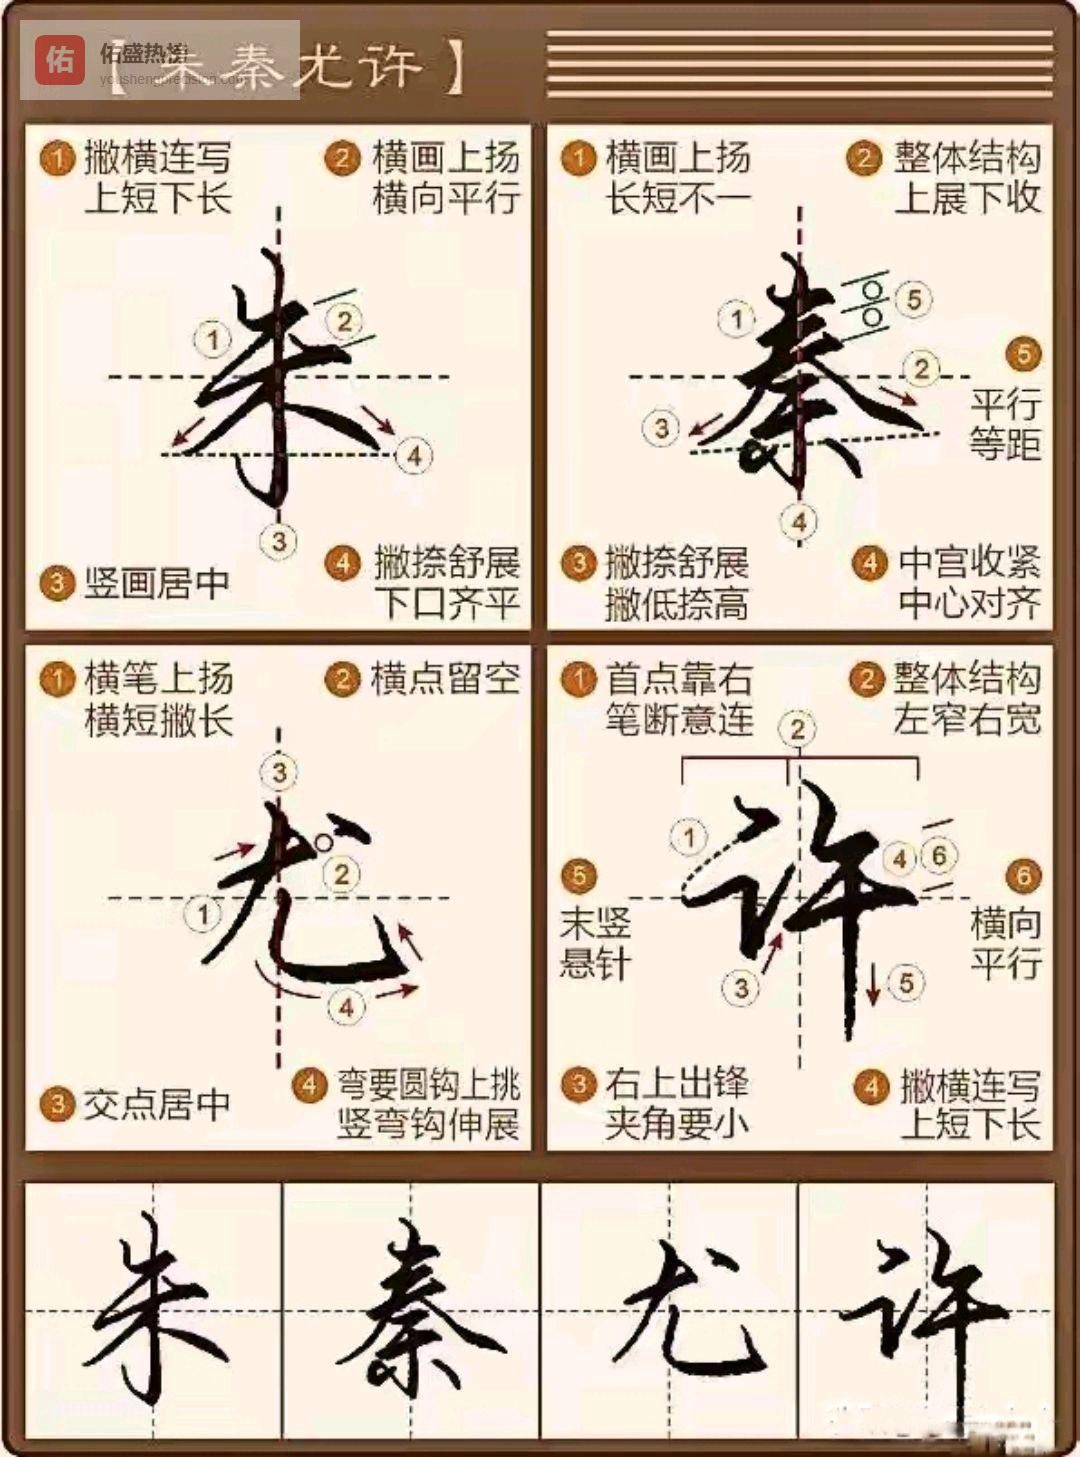 佑
佑盛热榜
youshengprecision.com
【朱秦尤许】
1 撇横连写
上短下长
2 横画上扬
横向平行
朱
1
2
4
3
3 竖画居中
4 撇捺舒展
下口齐平
1 横画上扬
长短不一
2 整体结构
上展下收
秦
1
5
2
3
4
5
平行
等距
3 撇捺舒展
撇低捺高
4 中宫收紧
中心对齐
1 横笔上扬
横短撇长
2 横点留空
3
尤
2
1
4
3 交点居中
4 弯要圆钩上挑
竖弯钩伸展
1 首点靠右
笔断意连
2 整体结构
左窄右宽
2
许
1
4
6
3
5
5
末竖
悬针
6
横向
平行
3 右上出锋
夹角要小
4 撇横连写
上短下长
朱 秦 尤 许